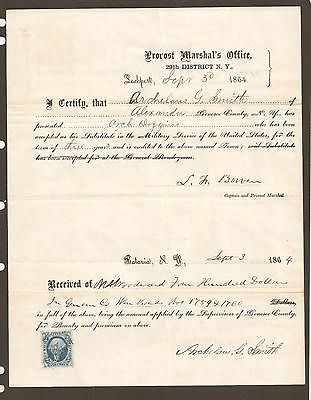 Provost Marshal's Office,
29th DISTRICT N. Y.,
Lockport, Sept 3d 1864
I Certify, that Archelaus G. Smith of
Alexander Genesee County, N. Y., has
presented who has been
accepted as his Substitute in the Military Service of the United States, for the
term of three years and is credited to the above named Town; said Substitute
has been accepted for at the General Rendezvous.
Bowen
Captain and Provost Marshal.
Batavia, N. Y., Sept 3 1864
Received of Woodward Four Hundred Dollars
In Genesee Co War Bonds Nos 1759 & 1760 Dollars,
in full of the above, being the amount applied by the Supervisors of Genesee County,
for Bounty and premium on above.
Archelaus G. Smith